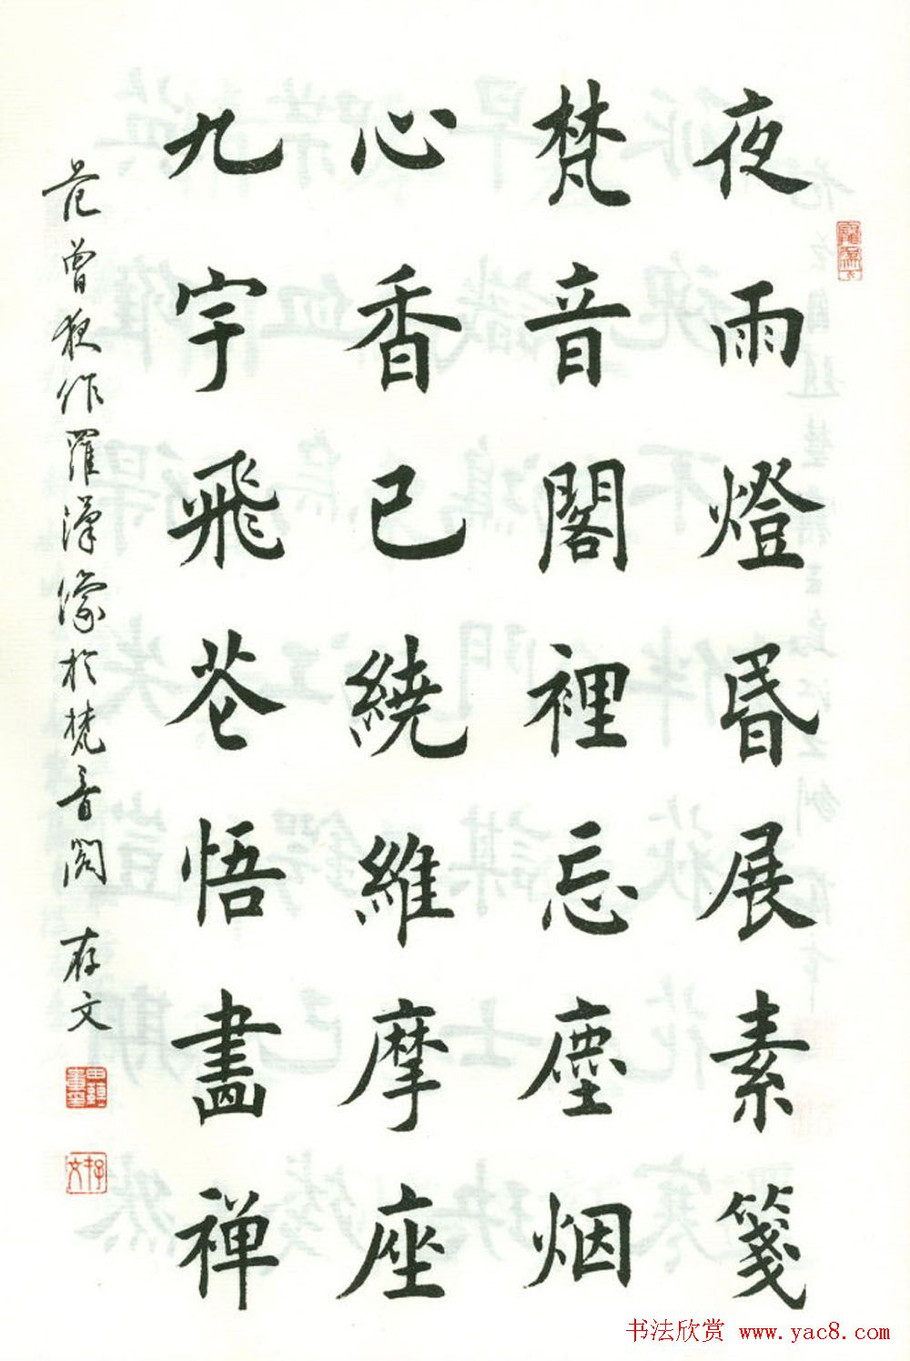 夜雨燈昬展素箋
梵音閣裡忘塵烟
心香已繞維摩座
九宇飛花悟畫禅
范曾夜作羅漢像於梵音阁 存文
存文
书法欣赏 www.yac8.com